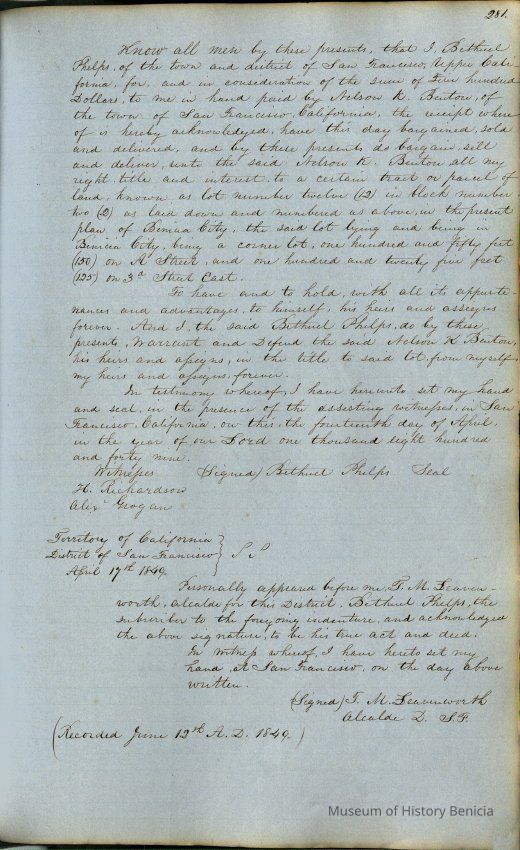 281.
Know all men by these presents, that I, Bethuel
Phelps, of the town and district of San Francisco, Upper Cali
fornia, for, and in consideration of the sum of Five hundred
Dollars, to me in hand paid by Nelson K. Benton, of
the town of San Francisco, California, the receipt where
of is hereby acknowledged, have this day bargained, sold
and delivered, and by these presents do bargain, sell
and deliver, unto the said Nelson K. Benton, all my
right, title and interest, to a certain tract or parcel of
land, known as lot number twelve (12) in block number
two (2) as laid down and numbered as above, in the present
plan of Benicia City, the said lot lying and being in
Benicia City, being a corner lot, one hundred and fifty feet
(150) on A Street, and one hundred and twenty five feet
(125) on 3d Street East.
To have and to hold, with all its apperte-
nances and advantages, to himself, his heirs and assigns
forever. And I, the said Bethuel Phelps, do by these
presents, Warrant and Defend the said Nelson K. Benton,
his heirs and assigns, in the title to said lot, from myself,
my heirs and assigns, forever.
In testimony whereof, I have hereunto set my hand
and seal, in the presence of the assesting witnesses, in San
Francisco, California, on this, the fourteenth day of April,
in the year of our Lord one thousand eight hundred
and forty nine.
Witnesses (Signed) Bethuel Phelps Seal
H. Richardson
Alexr Grogan
Territory of California
District of San Francisco
April 17th 1849.
Personally appeared before me, T. M. Leaven-
worth, alcalde for this District, Bethuel Phelps, the
subscriber to the foregoing indenture, and acknowledged
the above signature, to be his true act and deed.
In witness whereof, I have hereto set my
hand, at San Francisco, on the day above
written.
(Signed) T. M. Leavenworth
Alcalde D. S. F.
(Recorded June 12th A. D. 1849.)
Museum of History Benicia